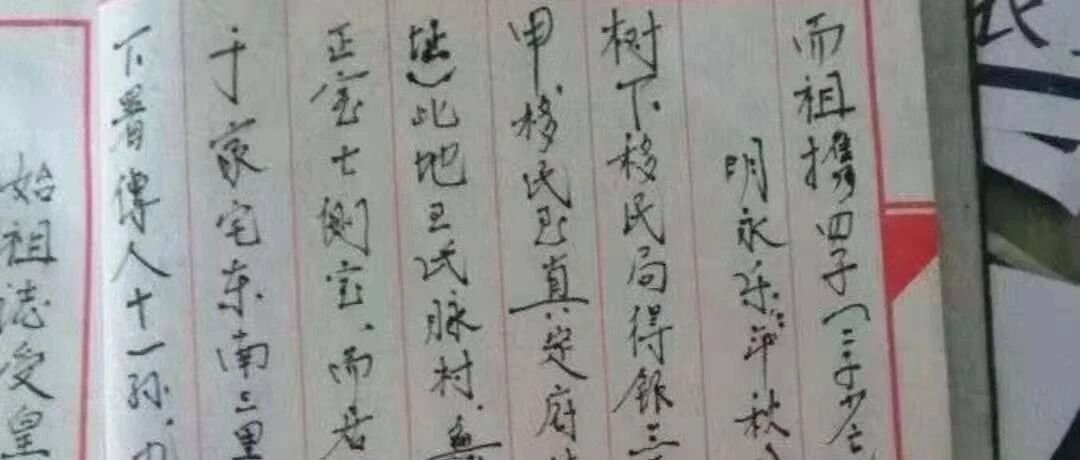 而祖携四子(三子少亡
明永乐年秋
树下移民局得银三
甲移民至真定府
此地王氏脉村
正室七侧室、而居
于家宅东南三里
下着傳人十一孙、九
始祖誌受皇